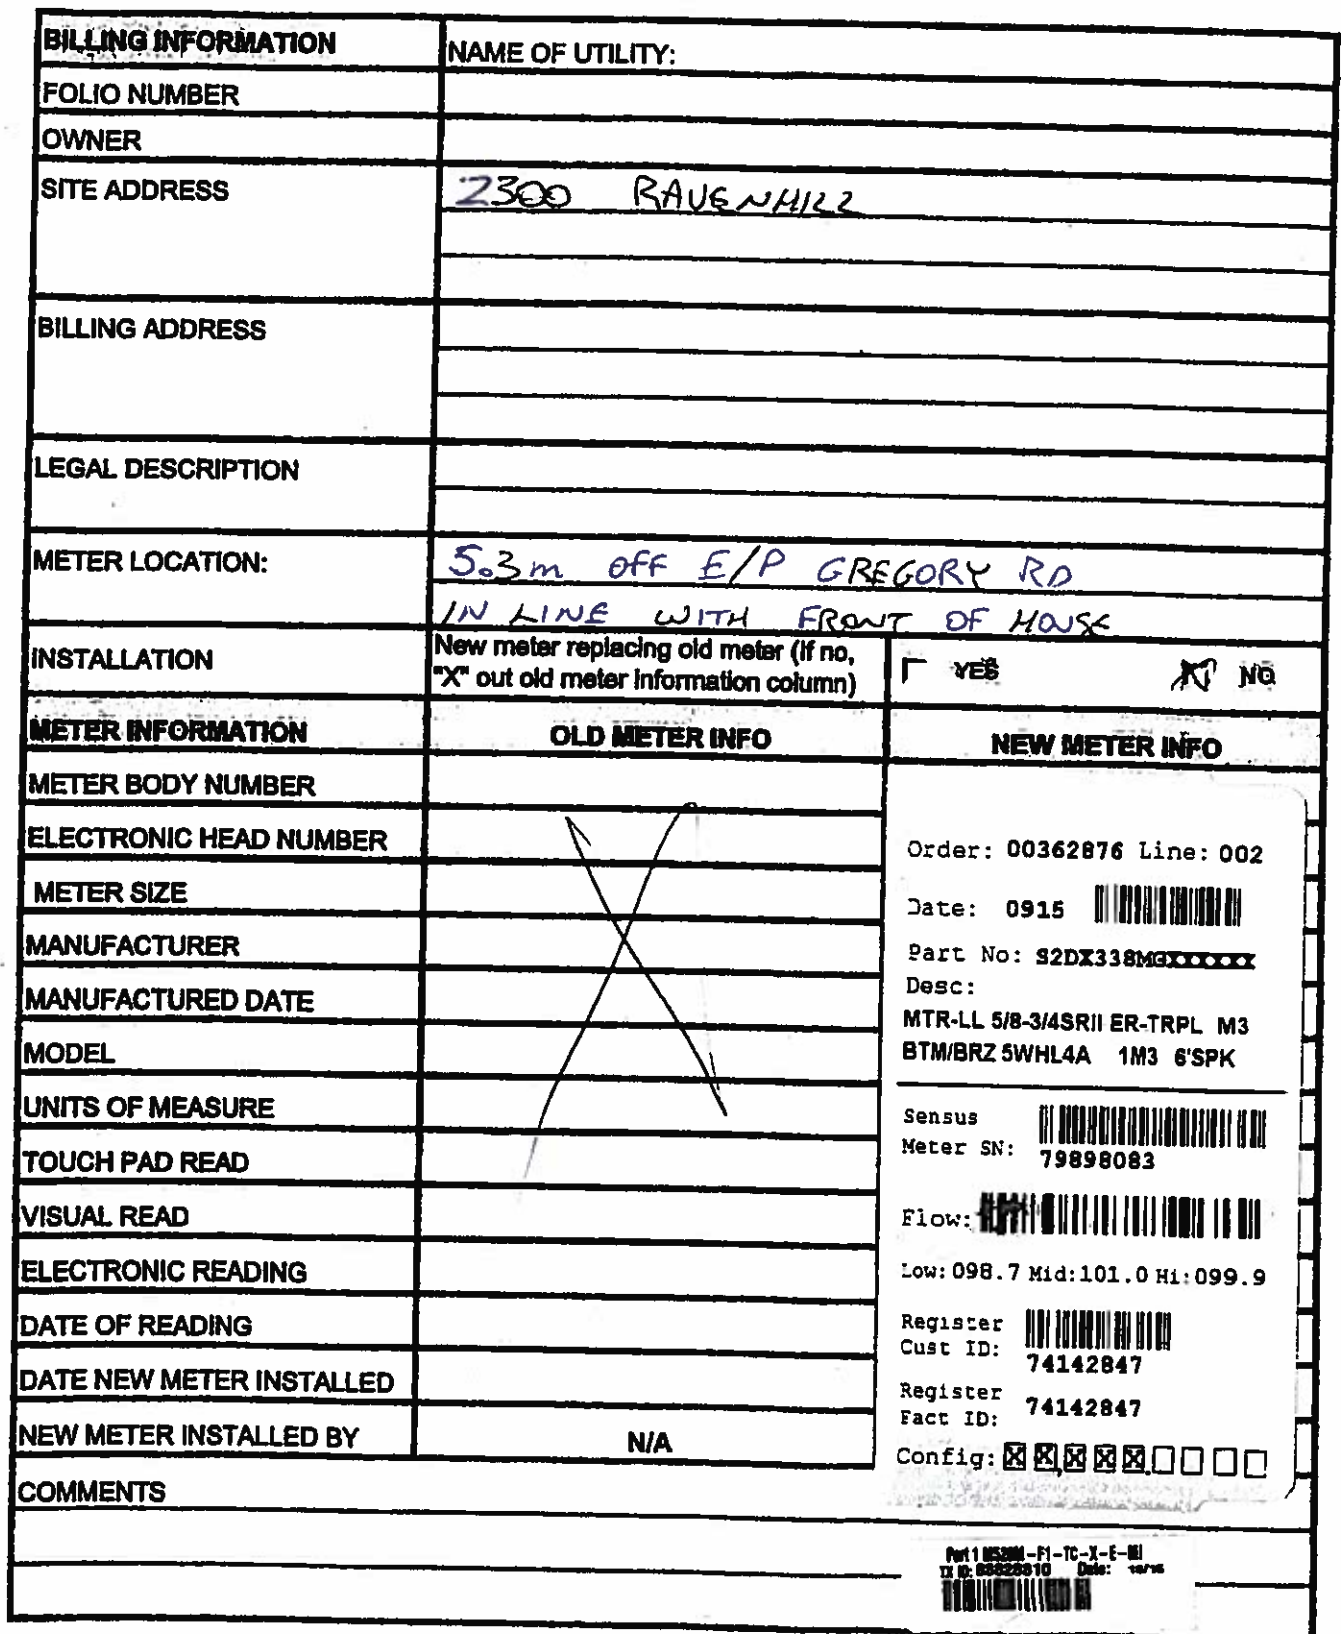 BILLING INFORMATION
NAME OF UTILITY:
FOLIO NUMBER
OWNER
SITE ADDRESS
2300 RAVENHILL
BILLING ADDRESS
LEGAL DESCRIPTION
METER LOCATION:
5.3m OFF E/P GREGORY RD
IN LINE WITH FRONT OF HOUSE
INSTALLATION
New meter replacing old meter (if no,
"X" out old meter information column)
YES
NO
METER INFORMATION
OLD METER INFO
NEW METER INFO
METER BODY NUMBER
ELECTRONIC HEAD NUMBER
METER SIZE
MANUFACTURER
MANUFACTURED DATE
MODEL
UNITS OF MEASURE
TOUCH PAD READ
VISUAL READ
ELECTRONIC READING
DATE OF READING
DATE NEW METER INSTALLED
NEW METER INSTALLED BY
N/A
Order: 00362876 Line: 002
Date: 0915
Part No: S2DX338MGXXXXXX
Desc:
MTR-LL 5/8-3/4SRII ER-TRPL M3
BTM/BRZ 5WHL4A 1M3 6'SPK
Sensus
Meter SN:
79898083
Flow:
Low:098.7 Mid:101.0 Hi:099.9
Register
Cust ID:
74142847
Register
Fact ID: 74142847
Config:
COMMENTS
TX ID: Date: